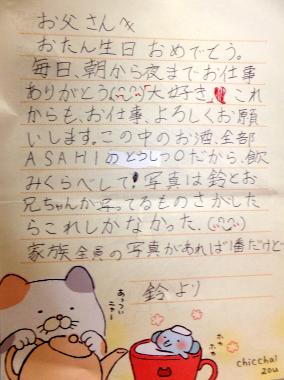 お父さんへ
おたん生日 おめでとう。
毎日、朝から夜までお仕事
ありがとう 大好き これ
からも、お仕事、よろしくお願
いします。この中のお酒、全部
ASAHIのとうしつ〇だから、飲
みくらべして!写真は鈴とお
兄ちゃんが写ってるものさがした
らこれしかなかった、
家族全員の写真があれば1番だけど
鈴より
あっつい
ニャー
ホカ
ホカ
chicchai
zou